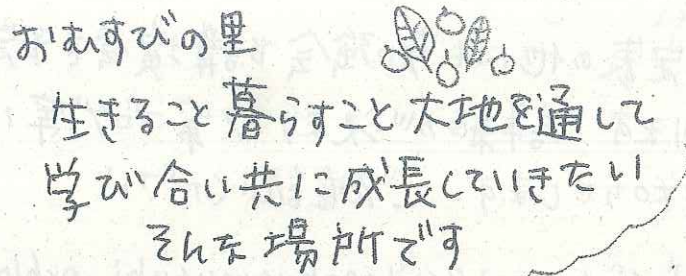 おむすびの里
生きること暮らすこと大地を通して
学び合い共に成長していきたい
そんな場所です